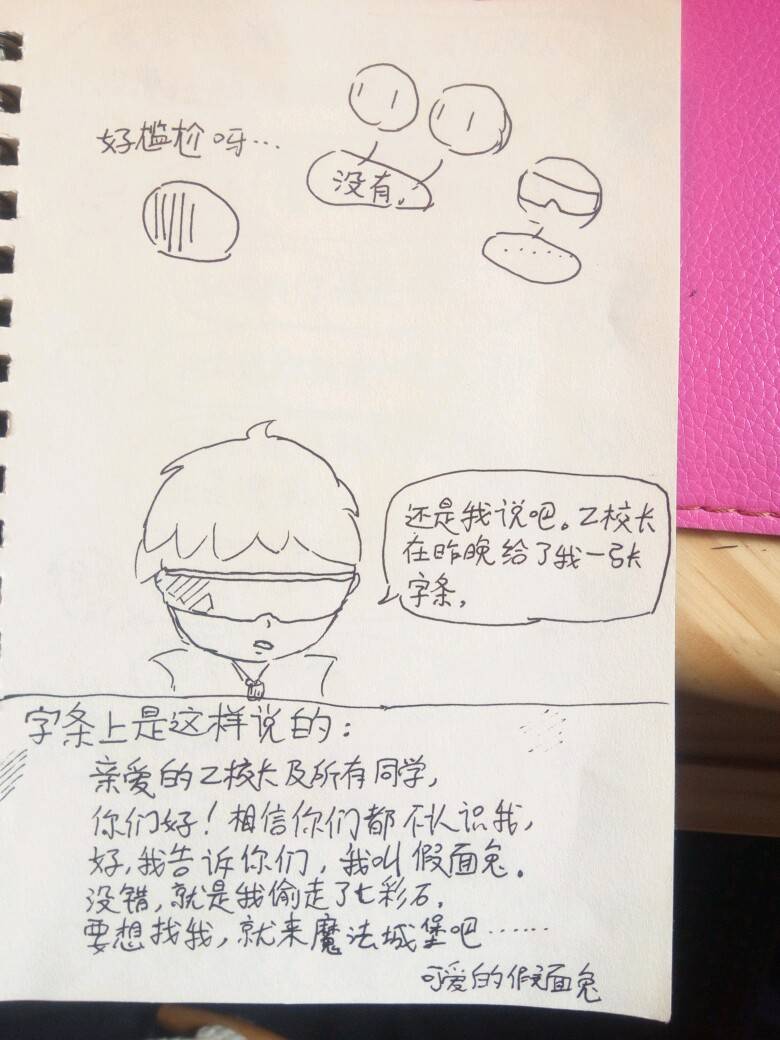 好尴尬呀…
没有。
……
还是我说吧。乙校长
在昨晚给了我一张
字条,
字条上是这样说的:
亲爱的乙校长及所有同学,
你们好!相信你们都不认识我,
好,我告诉你们,我叫假面兔.
没错,就是我偷走了七彩石.
要想找我,就来魔法城堡吧……
可爱的假面兔